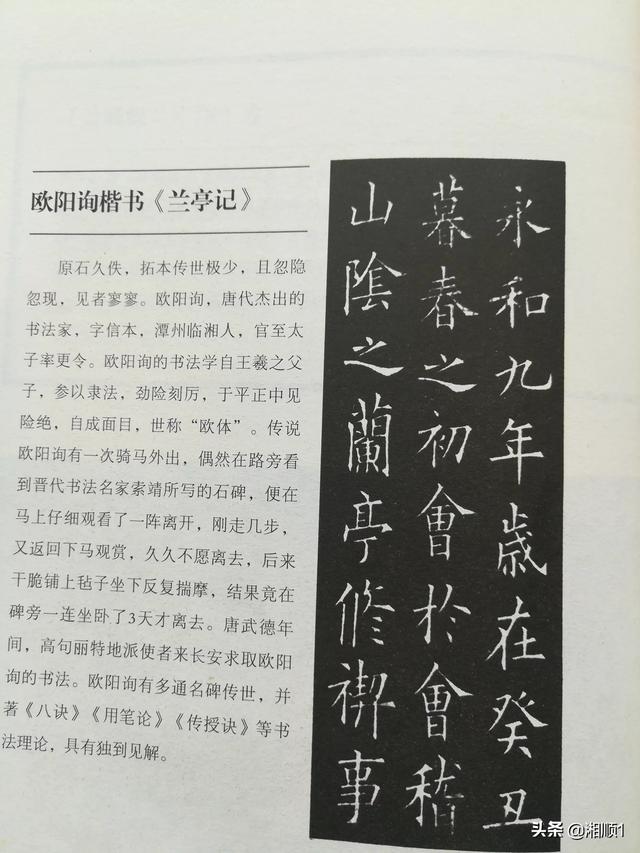 欧阳询楷书《兰亭记》
原石久佚，拓本传世极少，且忽隐
忽现，见者寥寥。欧阳询，唐代杰出的
书法家，字信本，潭州临湘人，官至太
子率更令。欧阳询的书法学自王羲之父
子，参以隶法，劲险刻厉，于平正中见
险绝，自成面目，世称“欧体”。传说
欧阳询有一次骑马外出，偶然在路旁看
到晋代书法名家索靖所写的石碑，便在
马上仔细观看了一阵离开，刚走几步，
又返回下马观赏，久久不愿离去，后来
干脆铺上毡子坐下反复揣摩，结果竟在
碑旁一连坐卧了3天才离去。唐武德年
间，高句丽特地派使者来长安求取欧阳
询的书法。欧阳询有多通名碑传世，并
著《八诀》《用笔论》《传授诀》等书
法理论，具有独到见解。
永和九年歳在癸丑
暮春之初會於會稽
山陰之蘭亭修禊事
头条@湘顺1